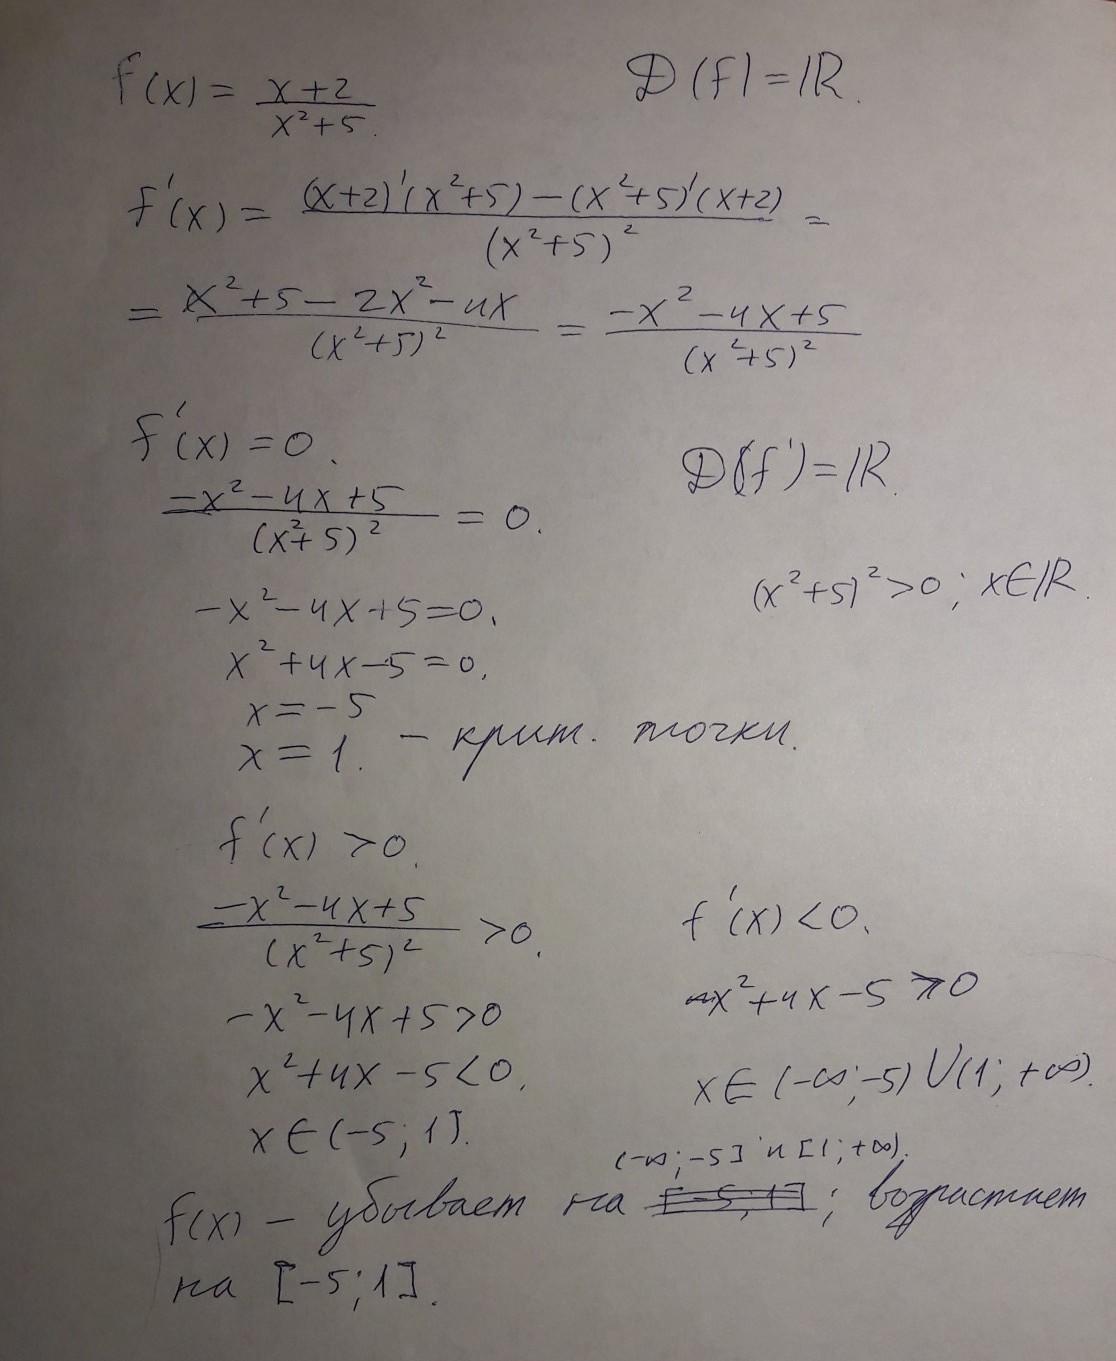 f(x) = (x+2)/(x²+5). D(f) = ℝ.
f'(x) = ((x+2)'(x²+5) − (x²+5)'(x+2))/(x²+5)² =
= (x²+5−2x²−4x)/(x²+5)² = (−x²−4x+5)/(x²+5)²
f'(x) = 0.
D(f') = ℝ.
(−x²−4x+5)/(x²+5)² = 0.
(x²+5)² > 0; x∈ℝ.
−x²−4x+5=0.
x²+4x−5=0.
x=−5
x=1. – крит. точки.
f'(x) > 0.
(−x²−4x+5)/(x²+5)² > 0.
−x²−4x+5>0
x²+4x−5<0.
x∈(−5; 1].
f'(x) < 0.
x²+4x−5 > 0
x∈(−∞;−5)∪(1;+∞).
(−∞;−5] и [1;+∞).
f(x) – убывает на [−5; 1]; возрастает
на [−5; 1].